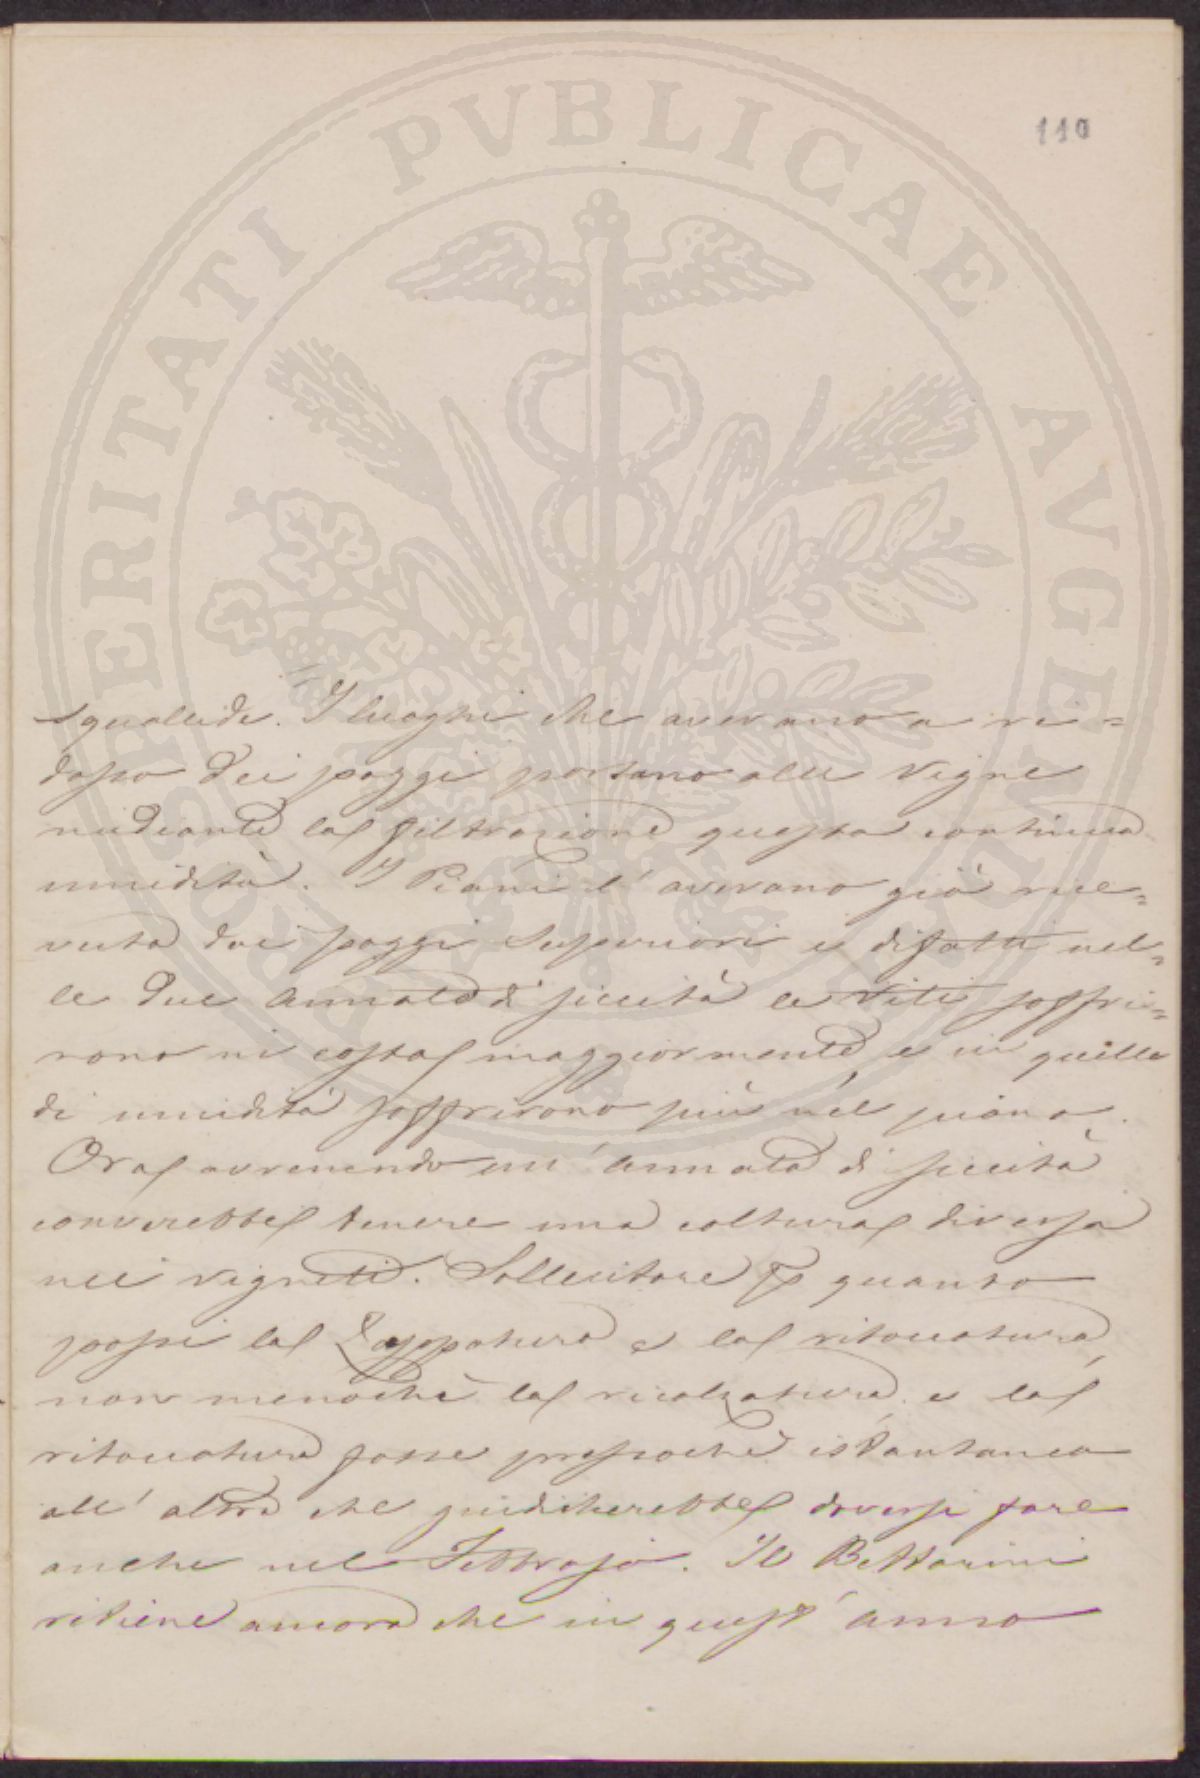 PROSPERITATI PVBLICAE AVGENDAE
110
squallide. I luoghi che avevano a ri=
dosso dei poggi portano alle vigne
mediante la filtrazione questa continua
umidità. I Piani l'avevano già rice=
vuta dai poggi superiori e difatti nel=
le due annate di siccità le viti soffri=
rono in costa maggiormente e in quelle
di umidità soffrirono più nel piano.
Ora avvenendo un'annata di siccità
converebbe tenere una coltura diversa
nei vigneti. Sollecitare quanto
possi la Zappatura e la ritoccatura
non menochè la ricalzatura e la
ritoccatura fosse pressochè istantanea
all'altra che giudicherebbe doversi fare
anche nel Febbrajo. Il Bettarini
ritiene ancora che in quest'anno